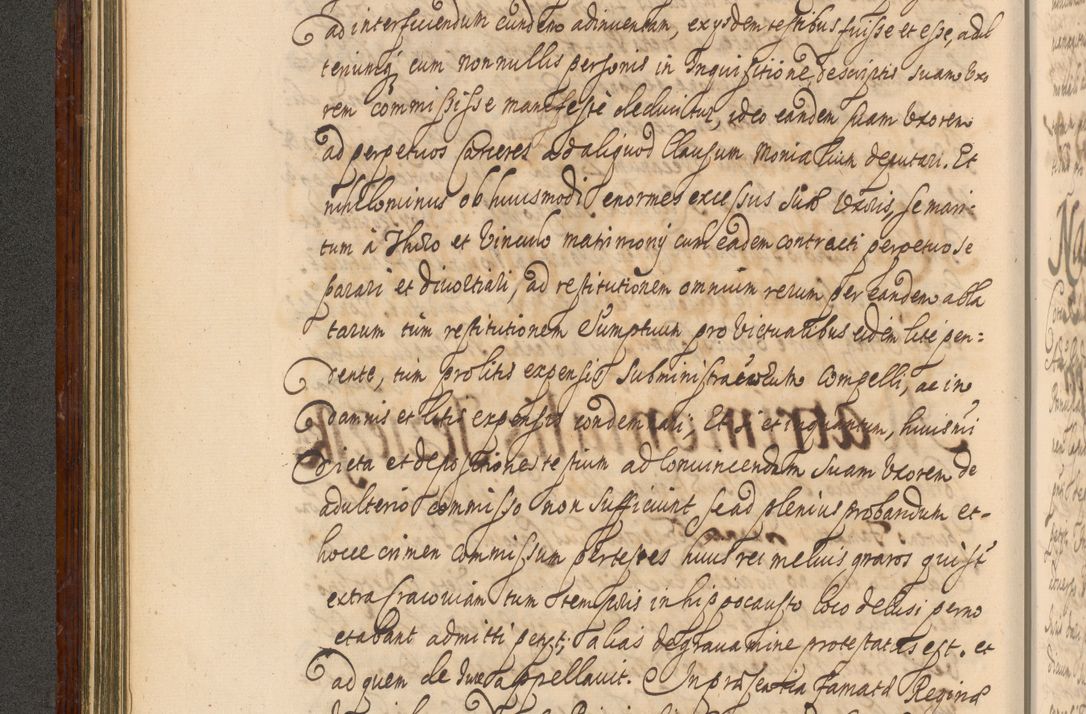 ad interficiendum eundem adinventam, ex ijsdem testibus fuisse et esse, adul
teriumq cum nonnullis personis in Inquisitione descriptis suam Vxo
rem commisisse manifeste deducitur, ideo eandem suam Vxorem
ad perpetuos Carceres ad aliquod Clausum Monialium deputari. Et
nihilominus ob huiusmodi enormes excessus suae Vxoris, se mari-
tum à Thoro et Vinculo matrimonij cum eadem contracti perpetuo se
parari et divortiari, ad restitutionem omnium rerum per eandem abla
tarum tum restitutionem Sumptuum pro Victualibus eidem lite pen=
dente, tum pro litis expensis Subministratorum Compelli, ac in
damnis et litis expensis condemnari; Et si et inquantum, huiusmi
dicta et depositiones testium ad Convincendam suam Vxorem de
adulterio commisso non sufficiunt se ad plenius probandum et-
hocce crimen Commissum per testes huius rei melius gnaros qui st
extra Cracoviam tum temporis in hippocausto loco delusi perno
ctabant admitti petijt; alias de gravamine protestatus est. et
ad quem de Iure appellavit. In praesentia Famatae Reginae